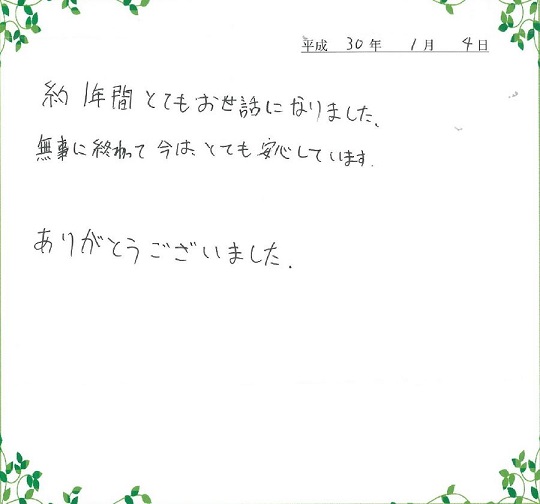 平成 30年 1月 4日
約1年間とてもお世話になりました、
無事に終わって今は、とても安心しています.
ありがとうございました.